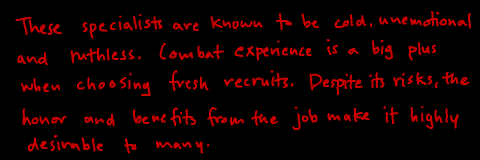 These specialists are known to be cold, unemotional
and ruthless. Combat experience is a big plus
when choosing fresh recruits. Despite its risks, the
honor and benefits from the job make it highly
desirable to many.